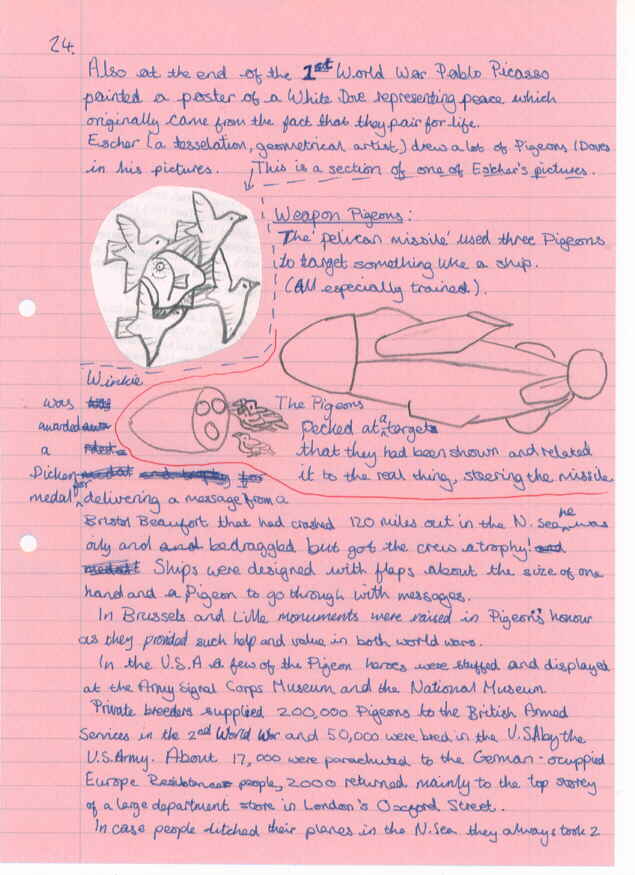 24.
Also at the end of the 1st World War Pablo Picasso
painted a poster of a White Dove representing peace which
originally came from the fact that they pair for life.
Escher (a tesselation, geometrical artist) drew a lot of Pigeons (Doves
in his pictures. This is a section of one of Escher's pictures.
Weapon Pigeons:
The 'pelican missile' used three Pigeons
to target something like a ship.
(All especially trained).
The Pigeons
pecked at a target
that they had been shown and related
it to the real thing, steering the missile
Winkie
was
awarded
a
Dicken
medal for delivering a message from a
Bristol Beaufort that had crashed 120 miles out in the N. Sea he was
oily and and bedraggled but got the crew a trophy! and
medal! Ships were designed with flaps about the size of one
hand and a Pigeon to go through with messages.
In Brussels and Lille monuments were raised in Pigeon's honour
as they provided such help and value in both world wars.
In the U.S.A a few of the Pigeon heroes were stuffed and displayed
at the Army Signal Corps Museum and the National Museum
Private breeders supplied 200,000 Pigeons to the British Armed
Services in the 2nd World War and 50,000 were bred in the U.S.A by the
U.S. Army. About 17,000 were parachuted to the German-ocuppied
Europe Resistances people, 2000 returned mainly to the top storey
of a large department store in London's Oxford Street.
In case people ditched their planes in the N. Sea they always took 2